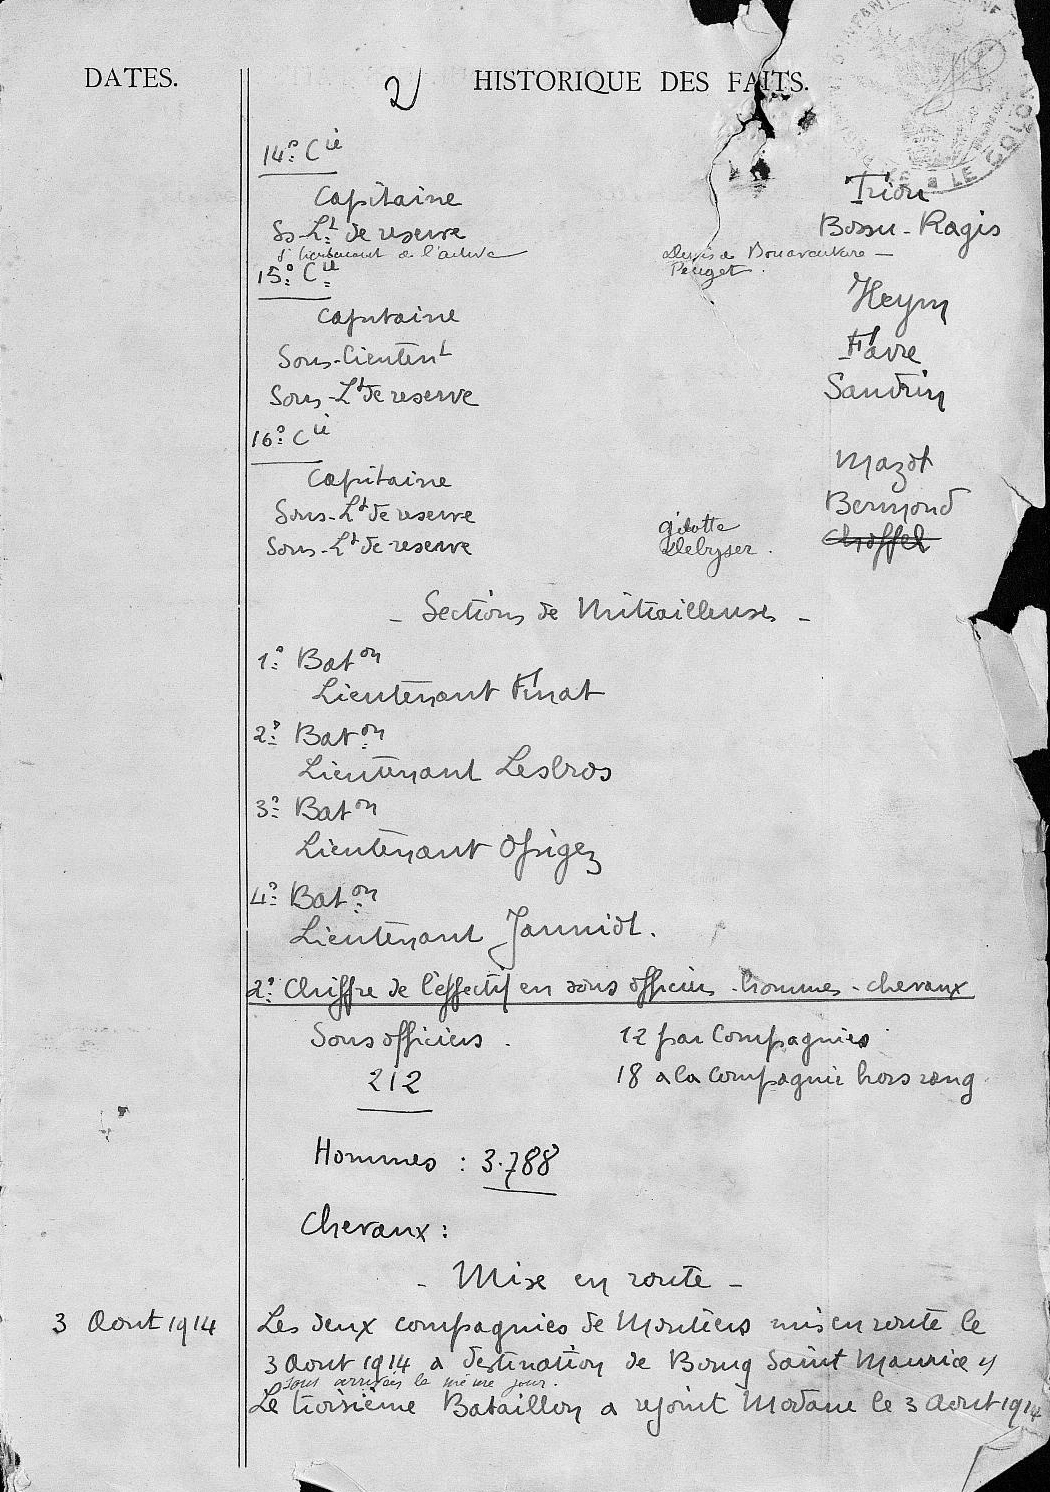 DATES.
2
HISTORIQUE DES FAITS.
LE COLON
14e Cie
Capitaine Trion
Ss-Lt de reserve Bossu-Ragis
St lieutenant de l'active Denis de Bonaventure -
Peuget.
15e Cie
Capitaine Heym
Sous-lieutent Favre
Sous-Lt de reserve Sandrin
16e Cie
Capitaine Mazot
Sous-Lt de reserve Bermond
Sous-Lt de reserve gilotte Chaffel
Debyser.
- Sections de Mitrailleuses -
1e Baton
Lieutenant Finat
2e Baton
Lieutenant Lesbros
3e Baton
Lieutenant Ofrigez
4e Baton
Lieutenant Janniot.
2e Chiffre de l'effectif en sous officiers - hommes - chevaux
Sous officiers. 12 par Compagnies
212 18 a la Compagnie hors rang
Hommes : 3.788
Chevaux :
- Mise en route -
3 Aout 1914 Les deux compagnies de Moutiers mis en route le
3 Aout 1914 a destination de Bourg Saint Maurice y
sont arrivées le même jour.
Le troisième Bataillon a rejoint Modane le 3 Aout 1914